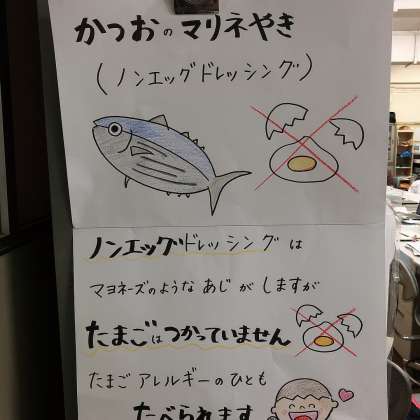 かつおのマリネやき
(ノンエッグドレッシング)
ノンエッグドレッシングは
マヨネーズのようなあじがしますが
たまごはつかっていません
たまごアレルギーのひとも
たべられます